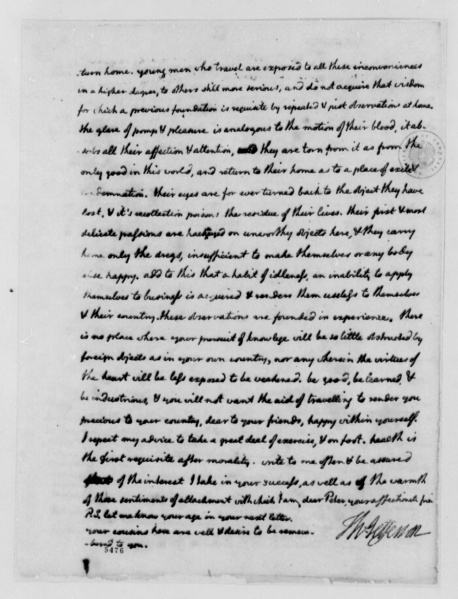 turn home. young men who travel are exposed to all these inconveniences
in a higher degree, to others still more serious, and do not acquire that wisdom
for which a previous foundation is requisite by repeated & just observations at home.
the glare of pomp & pleasure is analogous to the motion of their blood, it ab-
sorbs all their affection & attention, they are torn from it as from the
only good in this world, and return to their home as to a place of exile &
condemnation. their eyes are for ever turned back to the object they have
lost, & it's recollection poisons the residue of their lives. their first & most
delicate passions are hackneyed on unworthy objects here, & they carry
home only the dregs, insufficient to make themselves or any body
else happy. add to this that a habit of idleness, an inability to apply
themselves to business is acquired & renders them useless to themselves
& their country. these observations are founded in experience. there
is no place where your pursuit of knowlege will be so little obstructed by
foreign objects as in your own country, nor any wherein the virtues of
the heart will be less exposed to be weakened. be good, be learned, &
be industrious, & you will not want the aid of travelling to render you
precious to your country, dear to your friends, happy within yourself.
I repeat my advice to take a great deal of exercise, & on foot. health is
the first requisite after morality. write to me often & be assured
of the interest I take in your success, as well as of the warmth
of those sentiments of attachment with which I am, dear Peter, your affectionate friend
P.S. let me know your age in your next letter.
your cousins here are well & desire to be remem-
-bered to you.
Th: Jefferson
5476